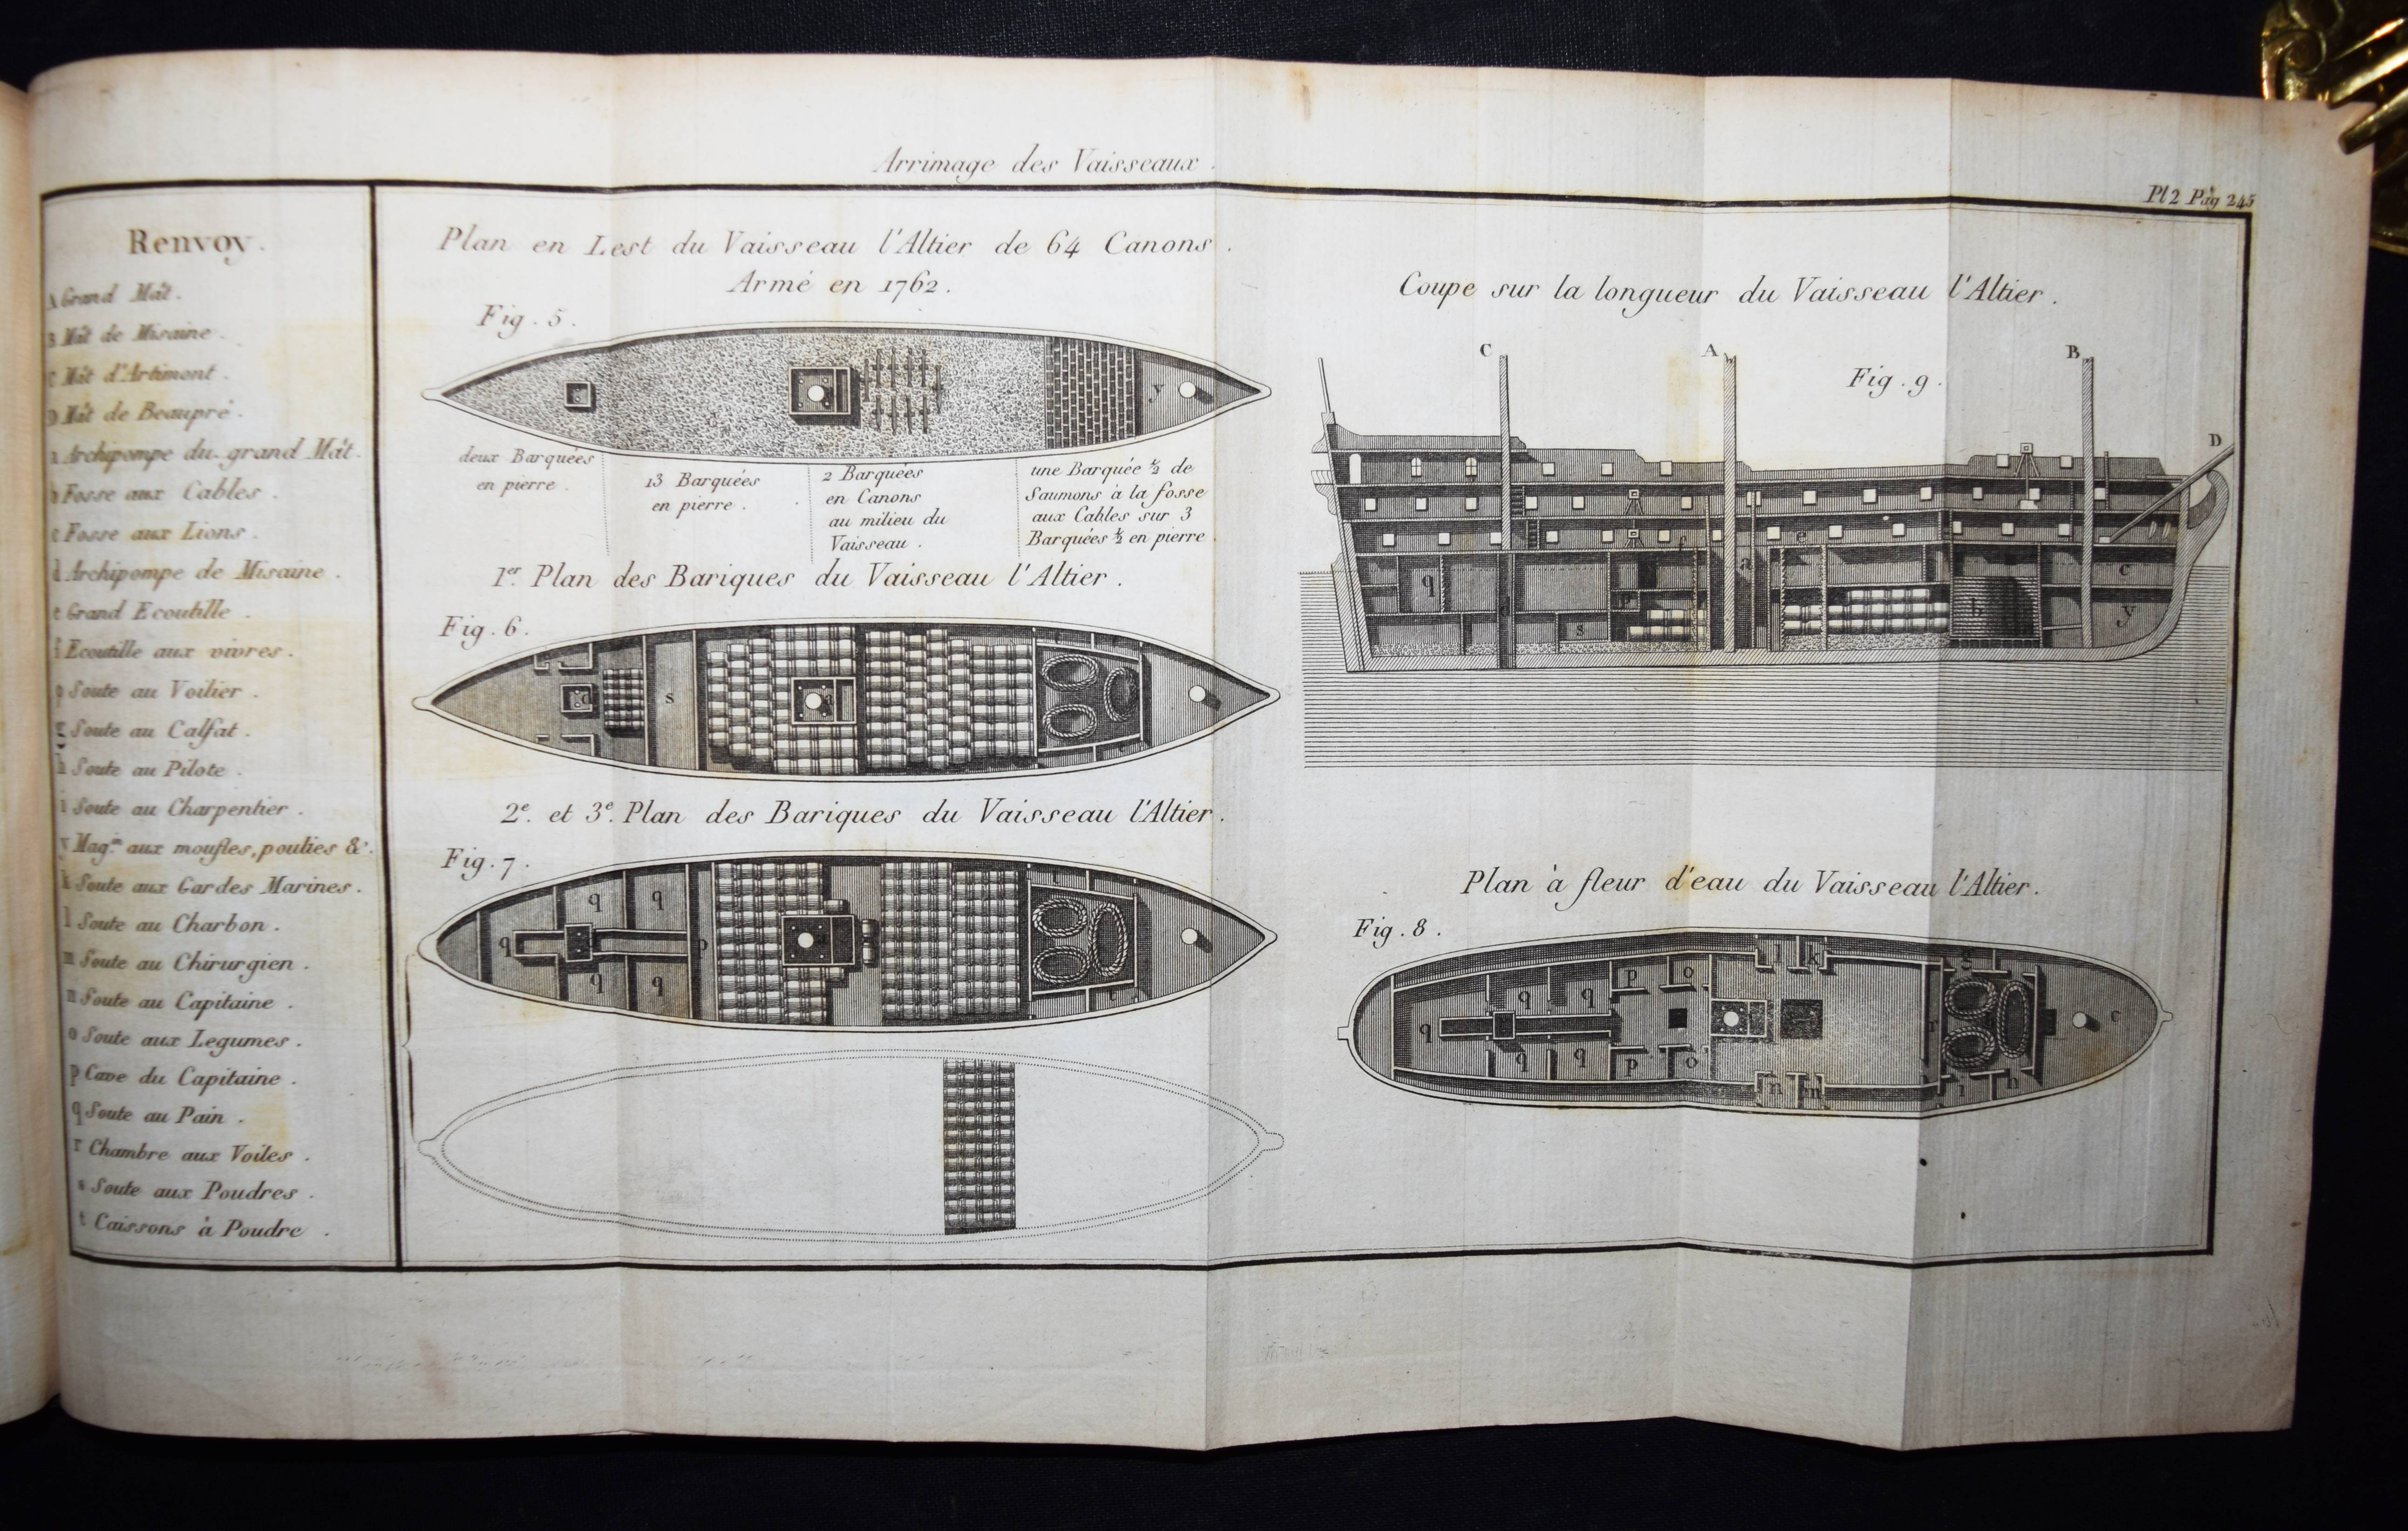 Arrimage des Vaisseaux.
Pl 2 Pag 245
Renvoy.
A Grand Mât.
B Mât de Misaine.
C Mât d'Artimont.
D Mât de Beaupré.
a Archipompe du grand Mât.
b Fosse aux Cables.
c Fosse aux Lions.
d Archipompe de Misaine.
e Grand Ecoutille
f Ecoutille aux vivres.
p Soute au Voilier.
g Soute au Calfat.
h Soute au Pilote.
i Soute au Charpentier.
y Mag.in aux moufles, poulies &c.
k Soute aux Gardes Marines.
l Soute au Charbon.
m Soute au Chirurgien.
n Soute au Capitaine.
o Soute aux Legumes.
p Cave du Capitaine.
q Soute au Pain.
r Chambre aux Voiles.
s Soute aux Poudres.
t Caissons à Poudre.
Plan en Lest du Vaisseau l'Altier de 64 Canons.
Armé en 1762.
Fig. 5.
y
deux Barquées
en pierre.
13 Barquées
en pierre.
2 Barquées
en Canons
au milieu du
Vaisseau.
une Barquée ½ de
Saumons à la fosse
aux Cables sur 3
Barquées ½ en pierre
1er. Plan des Bariques du Vaisseau l'Altier.
Fig. 6.
d s a t
2e. et 3e. Plan des Bariques du Vaisseau l'Altier.
Fig. 7.
q q t
q p
q q t
Coupe sur la longueur du Vaisseau l'Altier.
Fig. 9.
C A B D
f e
q a c
d p b y
s
Plan à fleur d'eau du Vaisseau l'Altier.
Fig. 8.
l k g
p o
q q
q r c
q q p o
n m i h